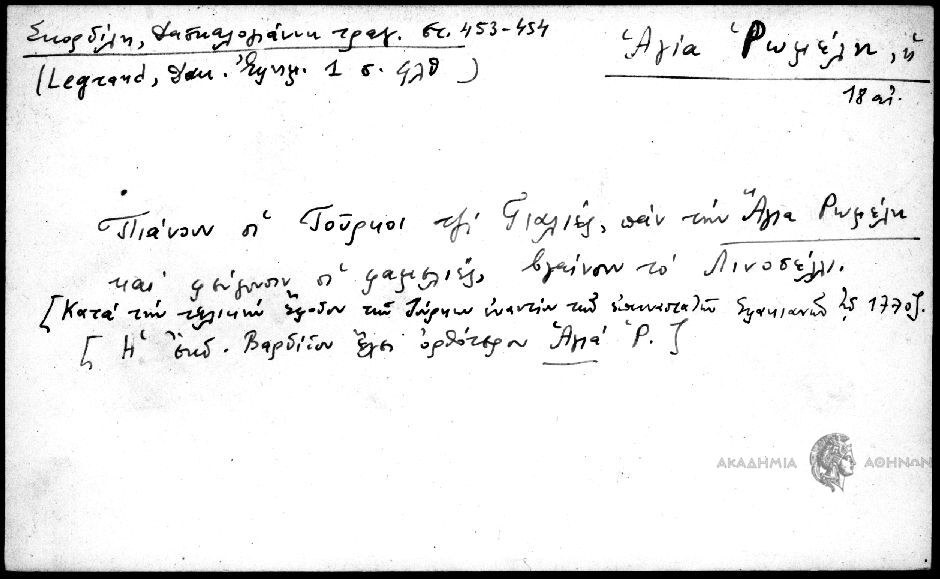 Σκορδίλη, Δασκαλογιάννη τραγ. στ. 453-454
(Legrand, Δακ. Ἐμπιμ. 1 σ. ϟλθ)
Ἁγία Ῥωμέλη, ἡ
18 αἰ.
Πιάνουν οἱ Τοῦρκοι τζὶ Γιαλιές, πᾶν τὴν Ἅγια Ρωμέλη
καὶ φεύγουσιν οἱ φαμελιές, βγαίνουν τὸ Λινοσέλι.
[Κατὰ τὴν τελικὴν ἔφοδον τῶν Τούρκων ἐναντίον τῶν ἐπαναστατῶν Σφακιανῶν τῷ 1770].
[Ἡ ἔκδ. Βαρδίδου ἔχει ὀρθότερον Ἁγιά Ῥ.]
ΑΚΑΔΗΜΙΑ ΑΘΗΝΩΝ